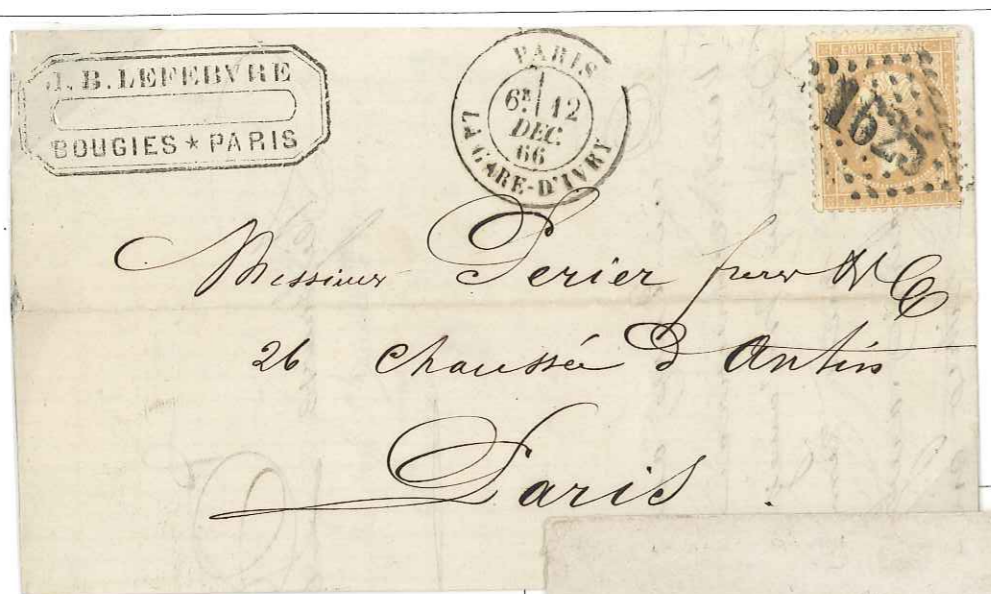 J. B. LEFEBVRE
BOUGIES * PARIS
PARIS
6E 12
DEC.
66
LA GARE-D'IVRY
EMPIRE FRANC
Messieurs Perier frères & Cie
26 Chaussée d'Antin
Paris